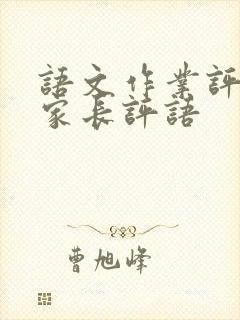 語文作業評
家長評語
曹旭峰